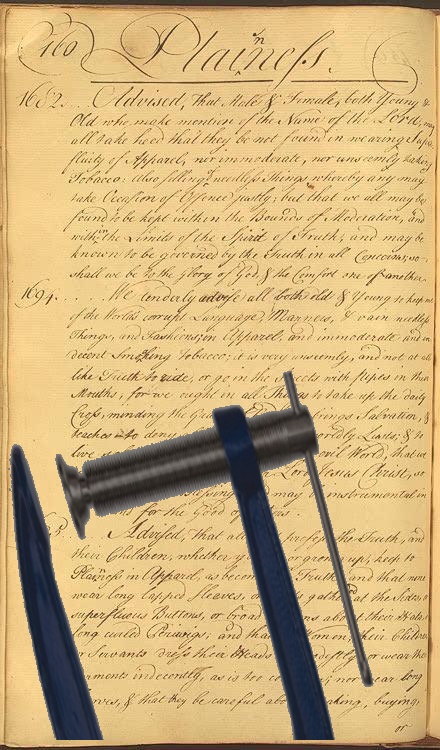 160
Plainness.
1682. . . Advised, That Male & Female, both Young &
Old who make mention of the Name of the Lord, may
all take heed that they be not found in wearing Super
fluity of Apparel, nor immoderate, nor unseemly taking
Tobacco: also selling needless Things whereby any may
take Occasion of Offence justly; but that we all may be
found to be kept within the Bounds of Moderation, and
within the Limits of the Spirit of Truth; and may be
known to be governed by the Truth in all Concerns, so
shall we be to the Glory of God, & the Comfort one of another.
1694. . . . . We tenderly advise all both old & Young to keep out
of the World's corrupt Language, Manners, & vain needless
Things, and Fashions, in Apparel; and immoderate and in
decent Smoking Tobacco; it is very unseemly, and not at all
like Truth to ride, or go in the Streets with pipes in their
Mouths, for we ought in all Things to take up the daily
Cross, minding the brings Salvation, &
teaches to deny Worldly Lusts; & to
live Evil World, that we
Lord Jesus Christ, so
may be instrumental in
for the Good of
Advised, that all profess the Truth, and
their Children, whether or grown up, keep to
Plainness in Apparel, as becomes Truth and that none
wear long lapped Sleeves, or gathered at the Sides, or
superfluous Buttons, or broad about their Hats, or
long curled Periwigs; and that Women, their Children
or Servants dress their Heads or wear their
Garments indecently, as is too nor wear long
& that they be careful about making, buying,
or